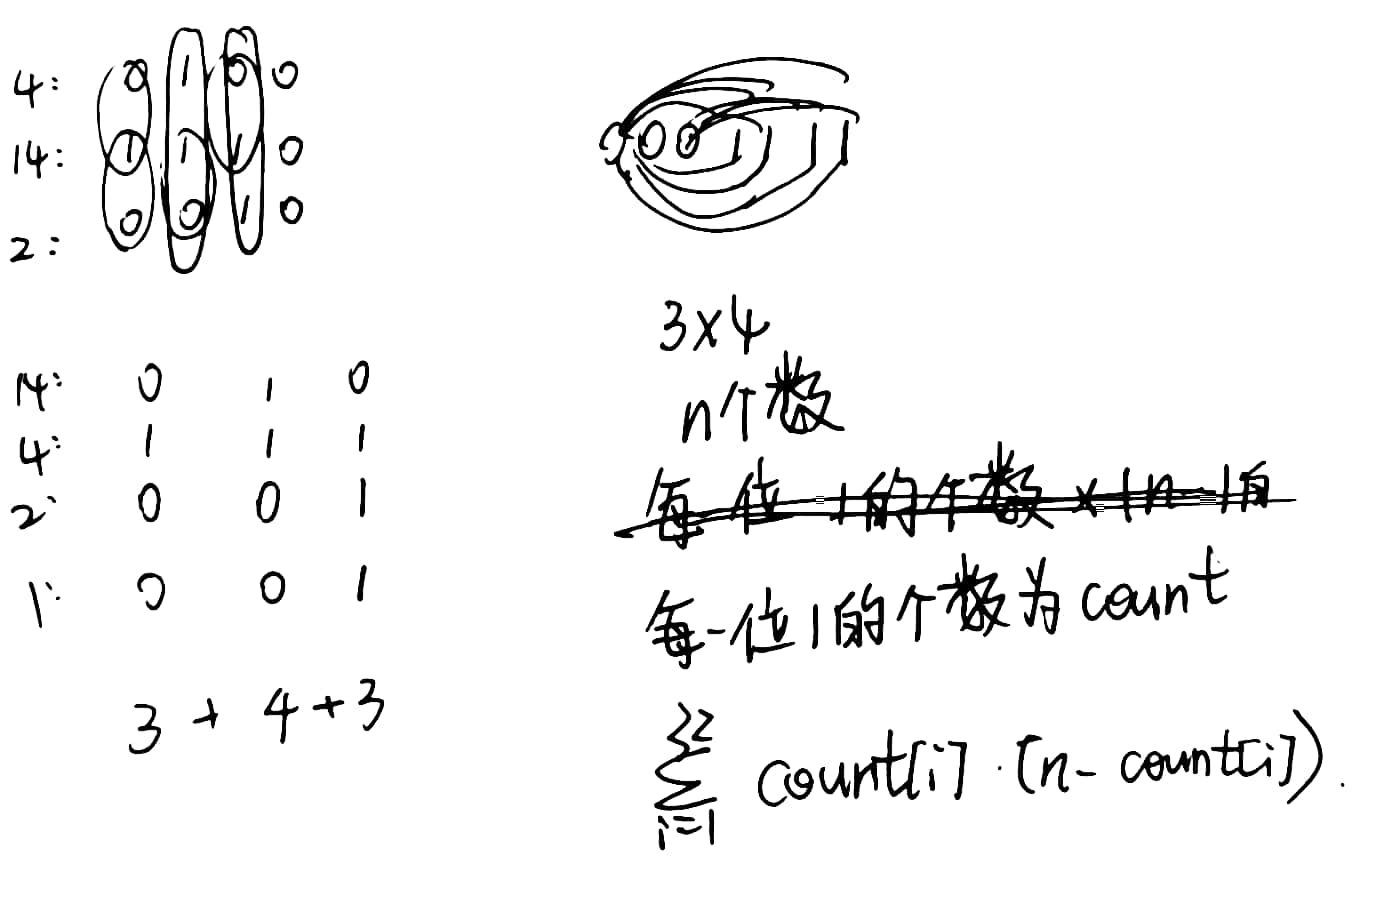 4: 0 1 0 0
14: 1 1 1 0
2: 0 0 1 0
14: 0 1 0
4: 1 1 1
2: 0 0 1
1: 0 0 1
3 + 4 + 3
0 0 0 1 1 1 1
3×4
n个数
每一位1的个数为count
32
∑ count[i] · (n - count[i]).
i=1